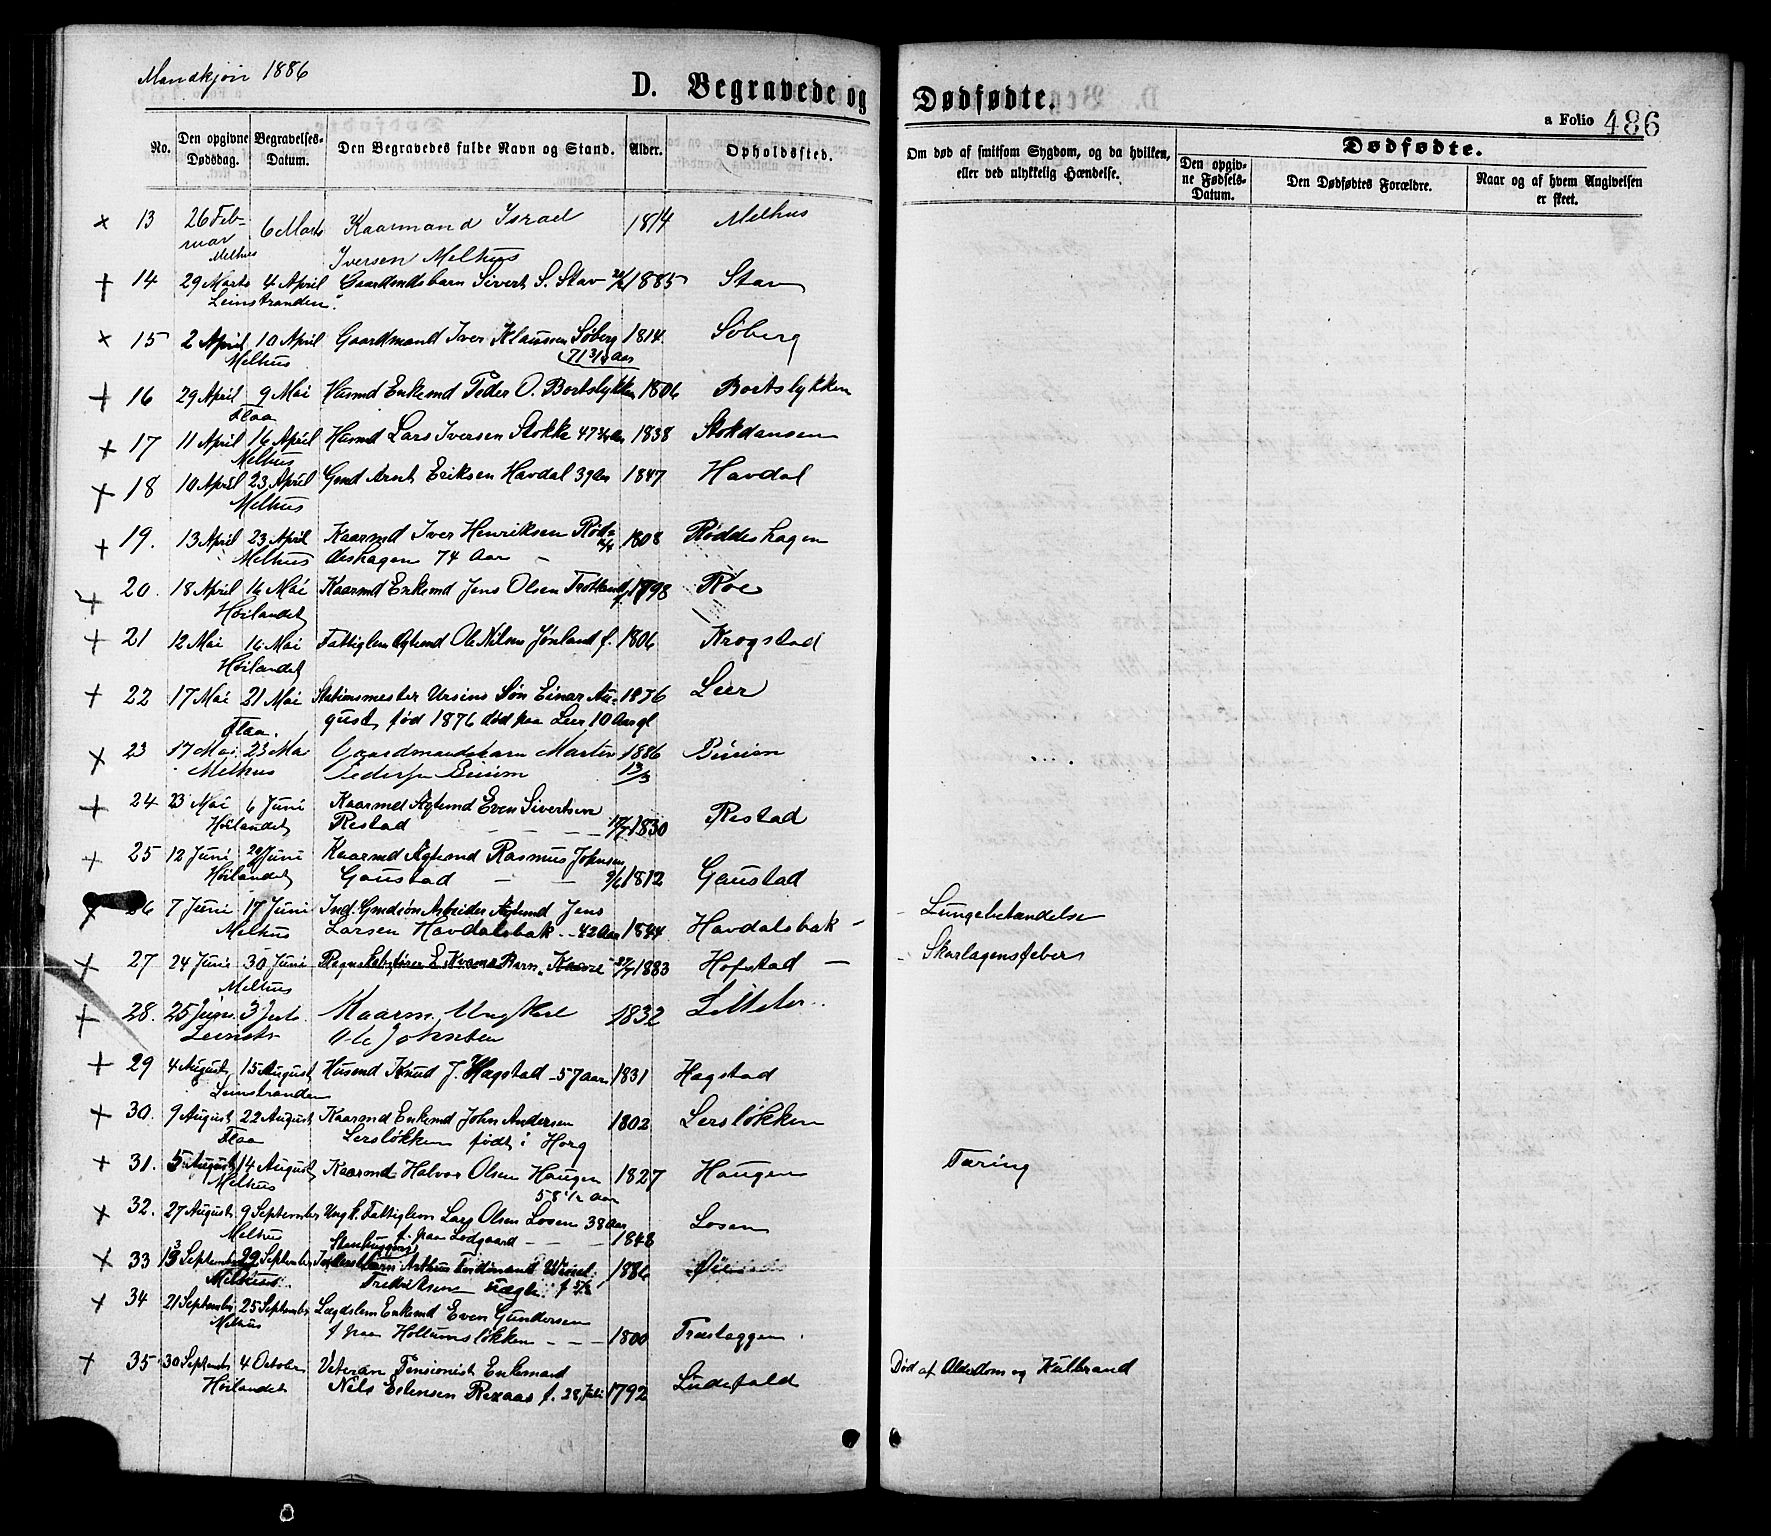 Mandkjön 1886
D. Begravede og Dødfødte.
a Folio 486
No. Den opgivne Dødsdag. Begravelses-Datum. Den Begravedes fulde Navn og Stand. Alder. Opholdssted.
Om død af smitsom Sygdom, og da hvilken, eller ved ulykkelig Hændelse.
Dødfødte.
Den opgivne Fødsels-Datum. Den Dødfødtes Forældre. Naar og af hvem Angivelsen er skeet.
13 26 Feb- 6 Marts Kaarmand Israel 1814 Melhus
ruar Melhus Iversen Melhus
14 29 Marts 4 April Gaardmdsbarn Sivert S. Stav 1885 Stav
Leinstranden
15 2 April 10 April Gaardmand Iver Klaussen Søberg 1814 Søberg
Melhus 71 3/4 Aar
16 29 April 9 Mai Husmd Enkemd Peder O. Bortslykken 1806 Bortslykken
Flaa
17 11 April 16 April Husmd Lars Iversen Stokke 47 3/4 Aar 1838 Stokdansen
Melhus
18 10 April 23 April Gmd Arnt Eriksen Havdal 39 Aar 1847 Havdal
Melhus
19. 13 April 23 April Kaarmd Iver Henriksen Rød- 1808 Røddeshagen
Melhus deshagen 74 Aar
20. 18 April 16 Mai Kaarmd Enkemd Jens Olsen 1798 Roe
Høilandet
21 12 Mai 16 Mai Fattiglem Ole Nilsen f. 1806 Krogstad
Høilandet
22 17 Mai 21 Mai Stationsmester Ursins Søn Einar Au- 1876 Leer
Flaa. gust, født 1876 død paa Leer 10 Aar gl
23 17 Mai 23 Mai Gaardmandsbarn Martin 1886
Melhus 13/3
24 23 Mai 6 Juni Kaarmd Ægtemd Even Sivertsen
Høilandet Restad 1830 Restad
25 12 Juni 20 Juni Kaarmd Ægtemd Rasmus Johnsen
Høilandet Gaustad 1812 Gaustad
26 7 Juni 17 Juni Ind. Gmdsøn Arbeider Ægtemd Jens Lungebetændelse
Melhus Larsen Havdalsbak 42 Aar 1844 Havdalsbak
27 24 Juni 30 Juni Regnskabsfører E. Kvams Barn Kaare 1883 Hofstad Skarlagensfeber
Melhus
28. 25 Juni 3 Juli Kaarm. Ungkarl 1832
Leinstr Ole Johnsen
29 4 August 15 August Husmd Knud J. Hagstad 57 aar 1831 Hagstad
Leinstranden
30. 9 August 22 August Kaarmd Enkemd John Andersen 1802 Lersløkken
Flaa Lersløkken født i Horg
31. 5 August 14 August Kaarmd Halvor Olsen Haugen 1827 Haugen Tæring
Melhus 58 1/2 Aar
32. 27 August 9 September Ungk. Fattiglem Lars Olsen Losen 38 Aar Losen
Melhus f. paa Lodgaard 1848
33 13 September 29 September Arthur Ferdinand 1886
Melhus Fredriksen
34 21 September 25 September Lægdslem Enkemd Even Gundersen
Melhus f. paa Hollumsløkken 1800
35 30 Septemb 4 October Veteran Pensionist Enkemand Død af Alderdom og Kulbrand
Høilandet Nils Estensen f. 28 Juli 1792